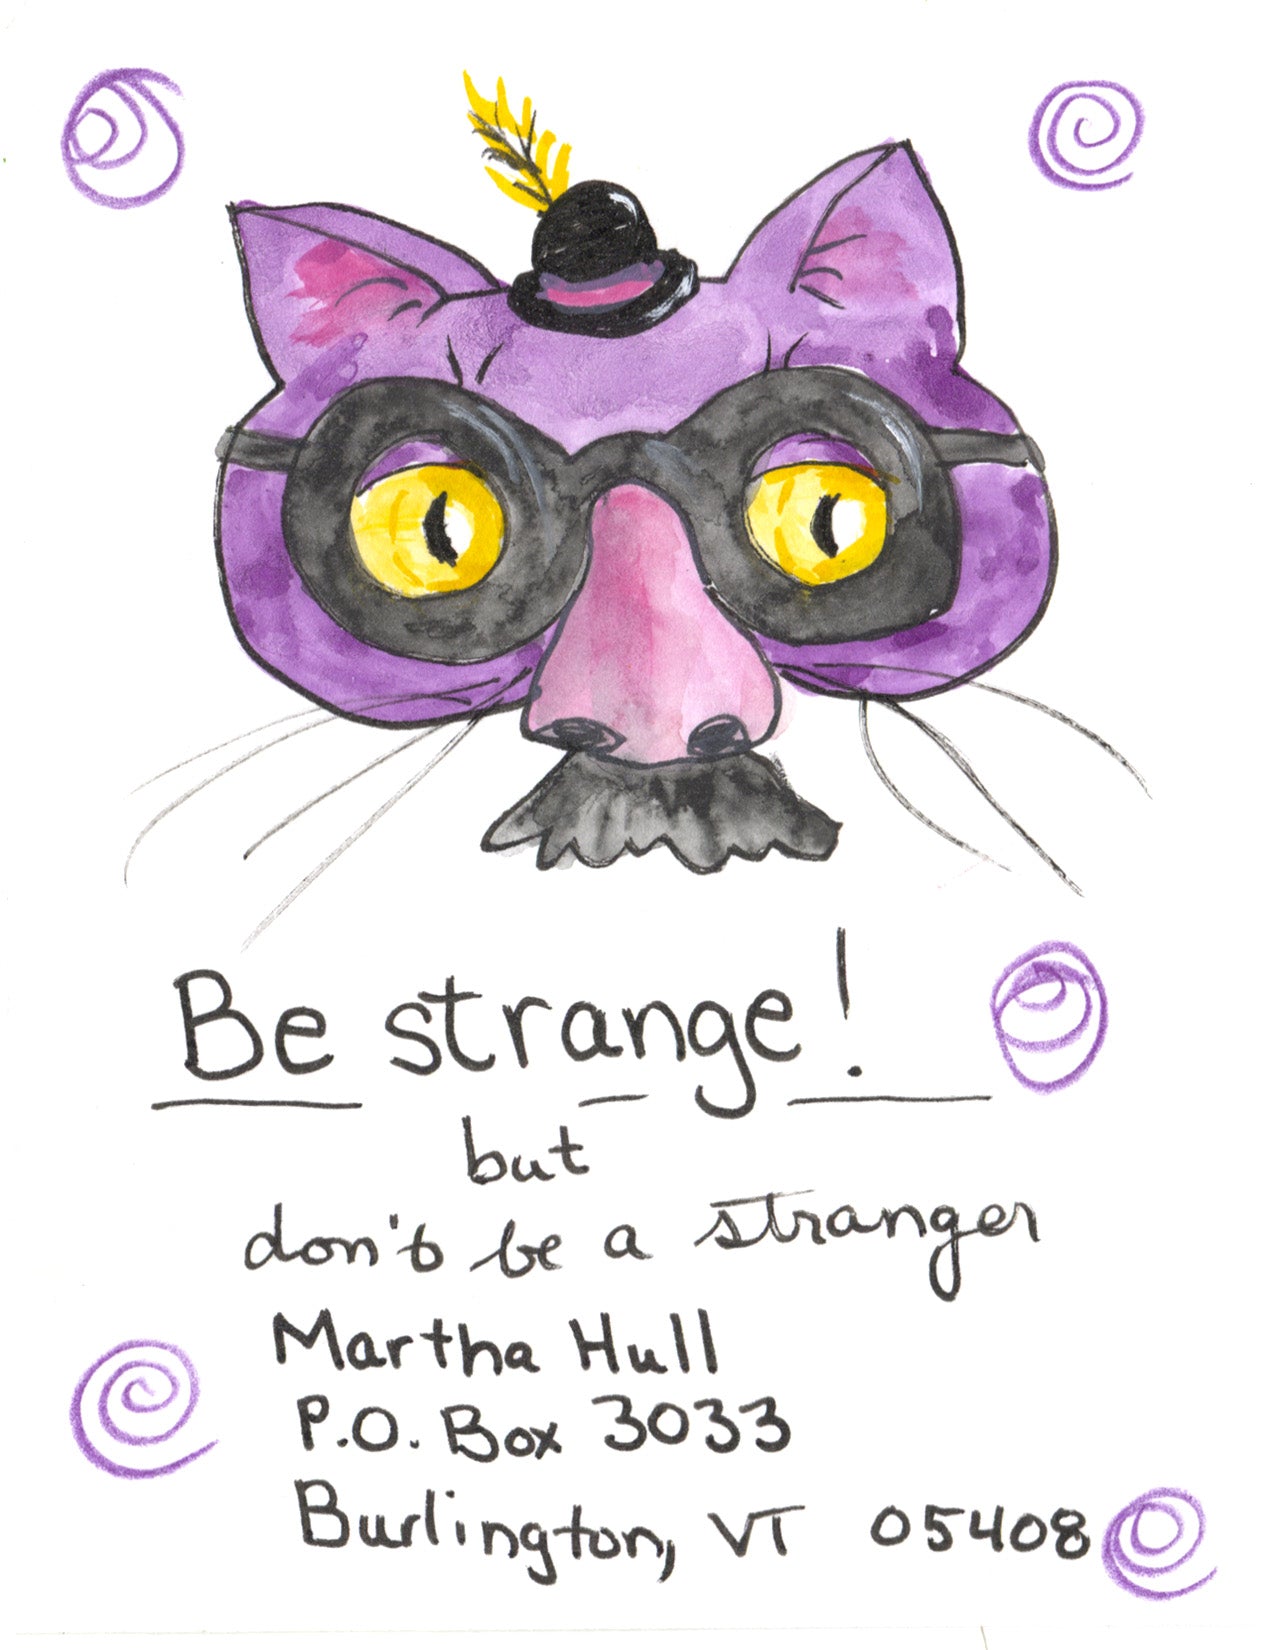 Be strange!
but
don't be a stranger
Martha Hull
P.O. Box 3033
Burlington, VT 05408